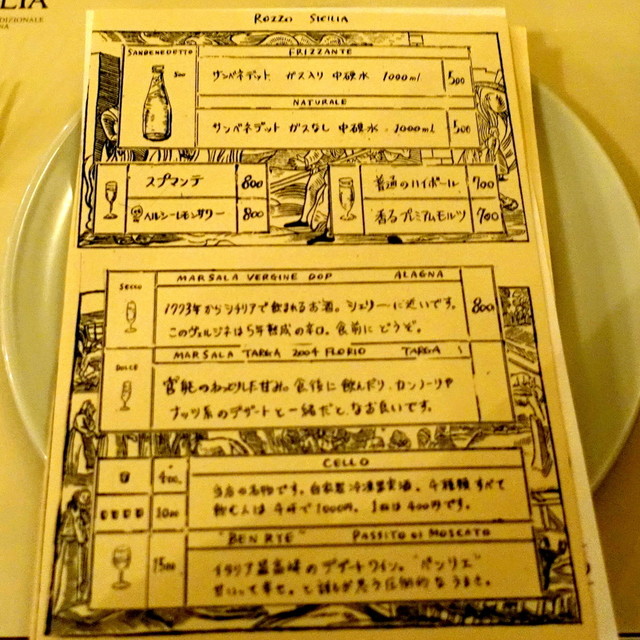 ROZZO SICILIA
SANBENEDETTO
FRIZZANTE
サンベネデット ガス入り 中硬水 1000ml 500
NATURALE
サンベネデット ガスなし 中硬水 1000ml 500
スプマンテ 800
ヘルシーレモンサワー 800
普通のハイボール 700
香るプレミアムモルツ 700
MARSALA VERGINE DOP ALAGNA
SECCO
1773年からシチリアで飲まれるお酒。シェリーに近いです。
このヴェルジネは5年熟成の辛口。食前にどうぞ。
800
MARSALA TARGA 2004 FLORIO TARGA
DOLCE
官能的な甘み。食後に飲んだり、カンノーリや
ナッツ系のデザートと一緒だとなお良いです。
CELLO
400
1000
当店の名物です。自家製冷凍果実酒。4種類すべて
飲む人は4杯で1000円、1杯は400円です。
"BEN RYE" PASSITO DI MOSCATO
1500
イタリア最高峰のデザートワイン。"ベンリエ"
甘いって幸せ。と誰もが思う圧倒的なうまさ。